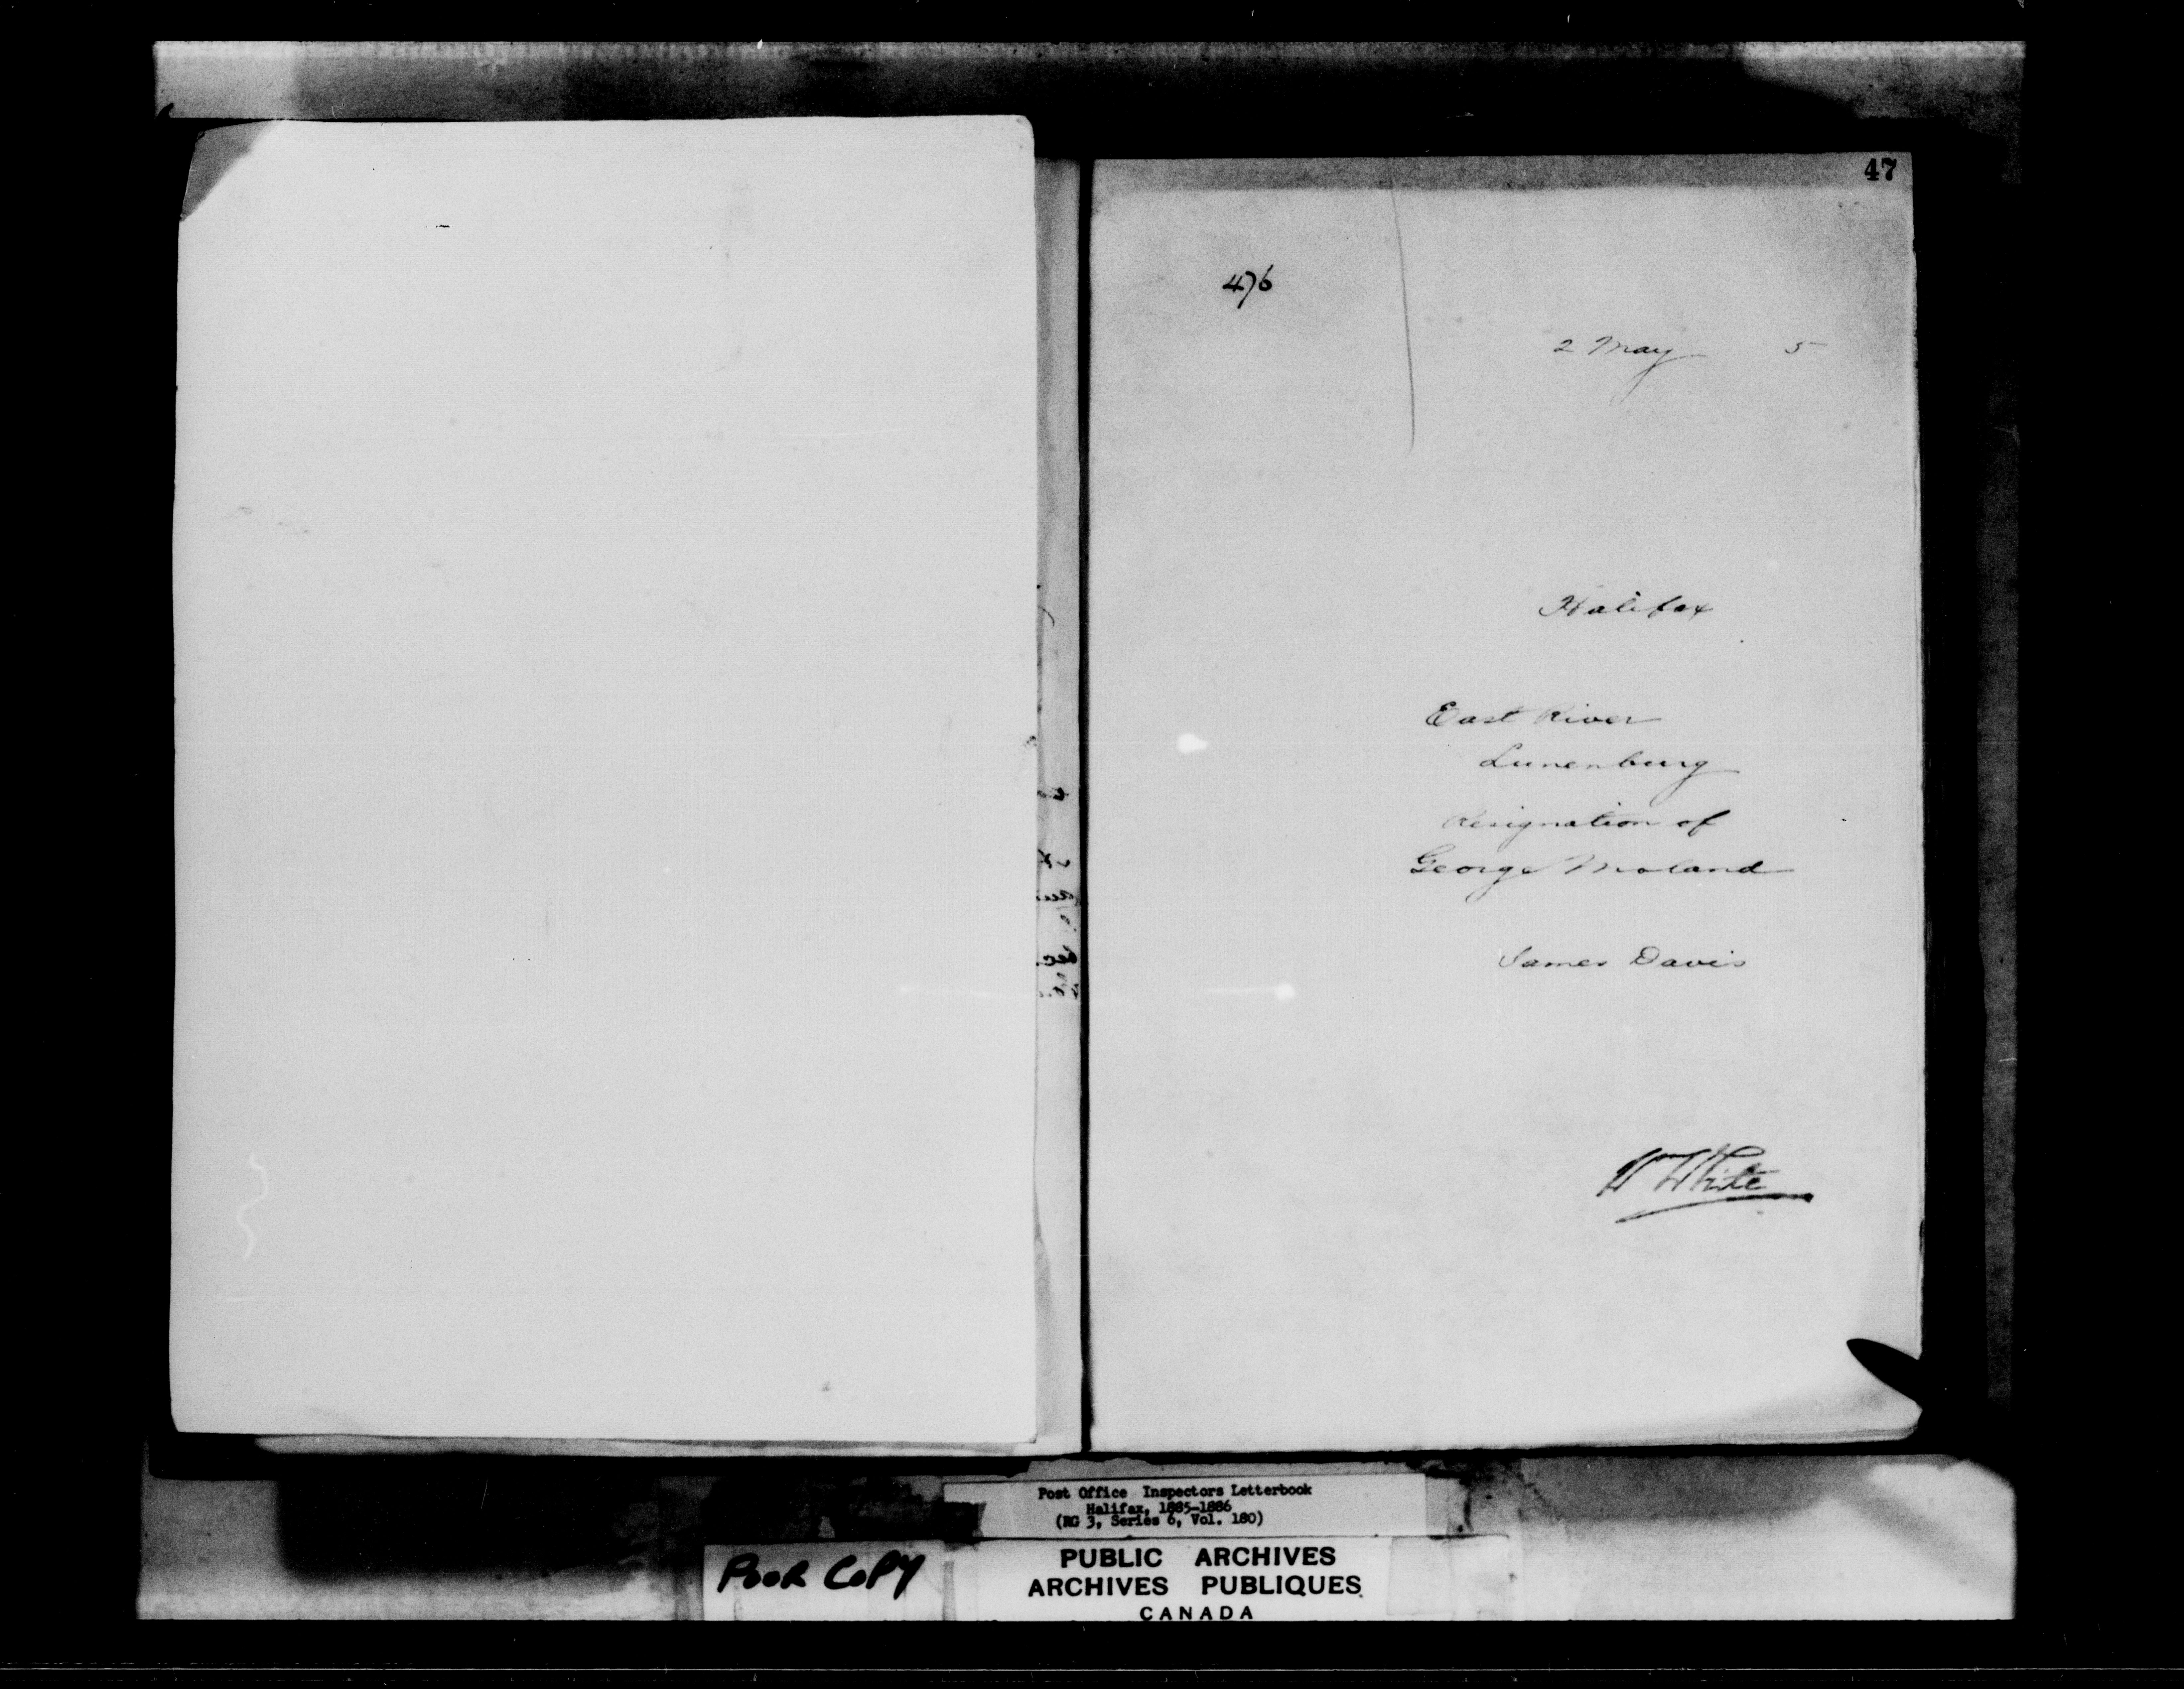 47
476
2 May 5
Halifax
East River
Lunenburg
Resignation of
George Moland
James Davis
W White
Post Office Inspectors Letterbook
Halifax, 1885-1886
(RG 3, Series 6, Vol. 180)
POOR COPY
PUBLIC ARCHIVES
ARCHIVES PUBLIQUES
CANADA